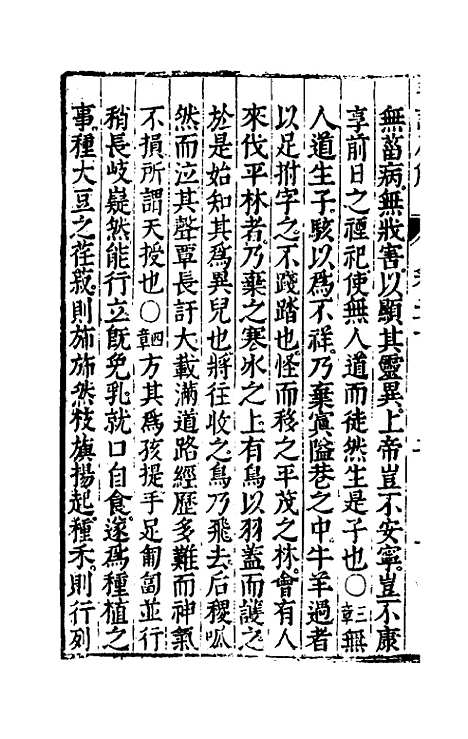 無菑病無戕害以顯其靈異上帝豈不安寧豈不康
享前日之禋祀使無人道而徒然生是子也〇三章無
人道生子駭以爲不祥乃棄寘隘巷之中牛羊過者
以足拊字之不踐踏也怪而移之平茂之林會有人
來伐平林者乃棄之寒冰之上有鳥以羽蓋而護之
於是始知其爲異兒也將往收之鳥乃飛去后稷呱
然而泣其聲覃長訏大載滿道路經歷多難而神氣
不損所謂天授也〇四章方其爲孩提手足匍匐並行
稍長岐嶷然能行立旣免乳就口自食遂爲種植之
事種大豆之荏菽則斾斾然枝旟揚起種禾則行列